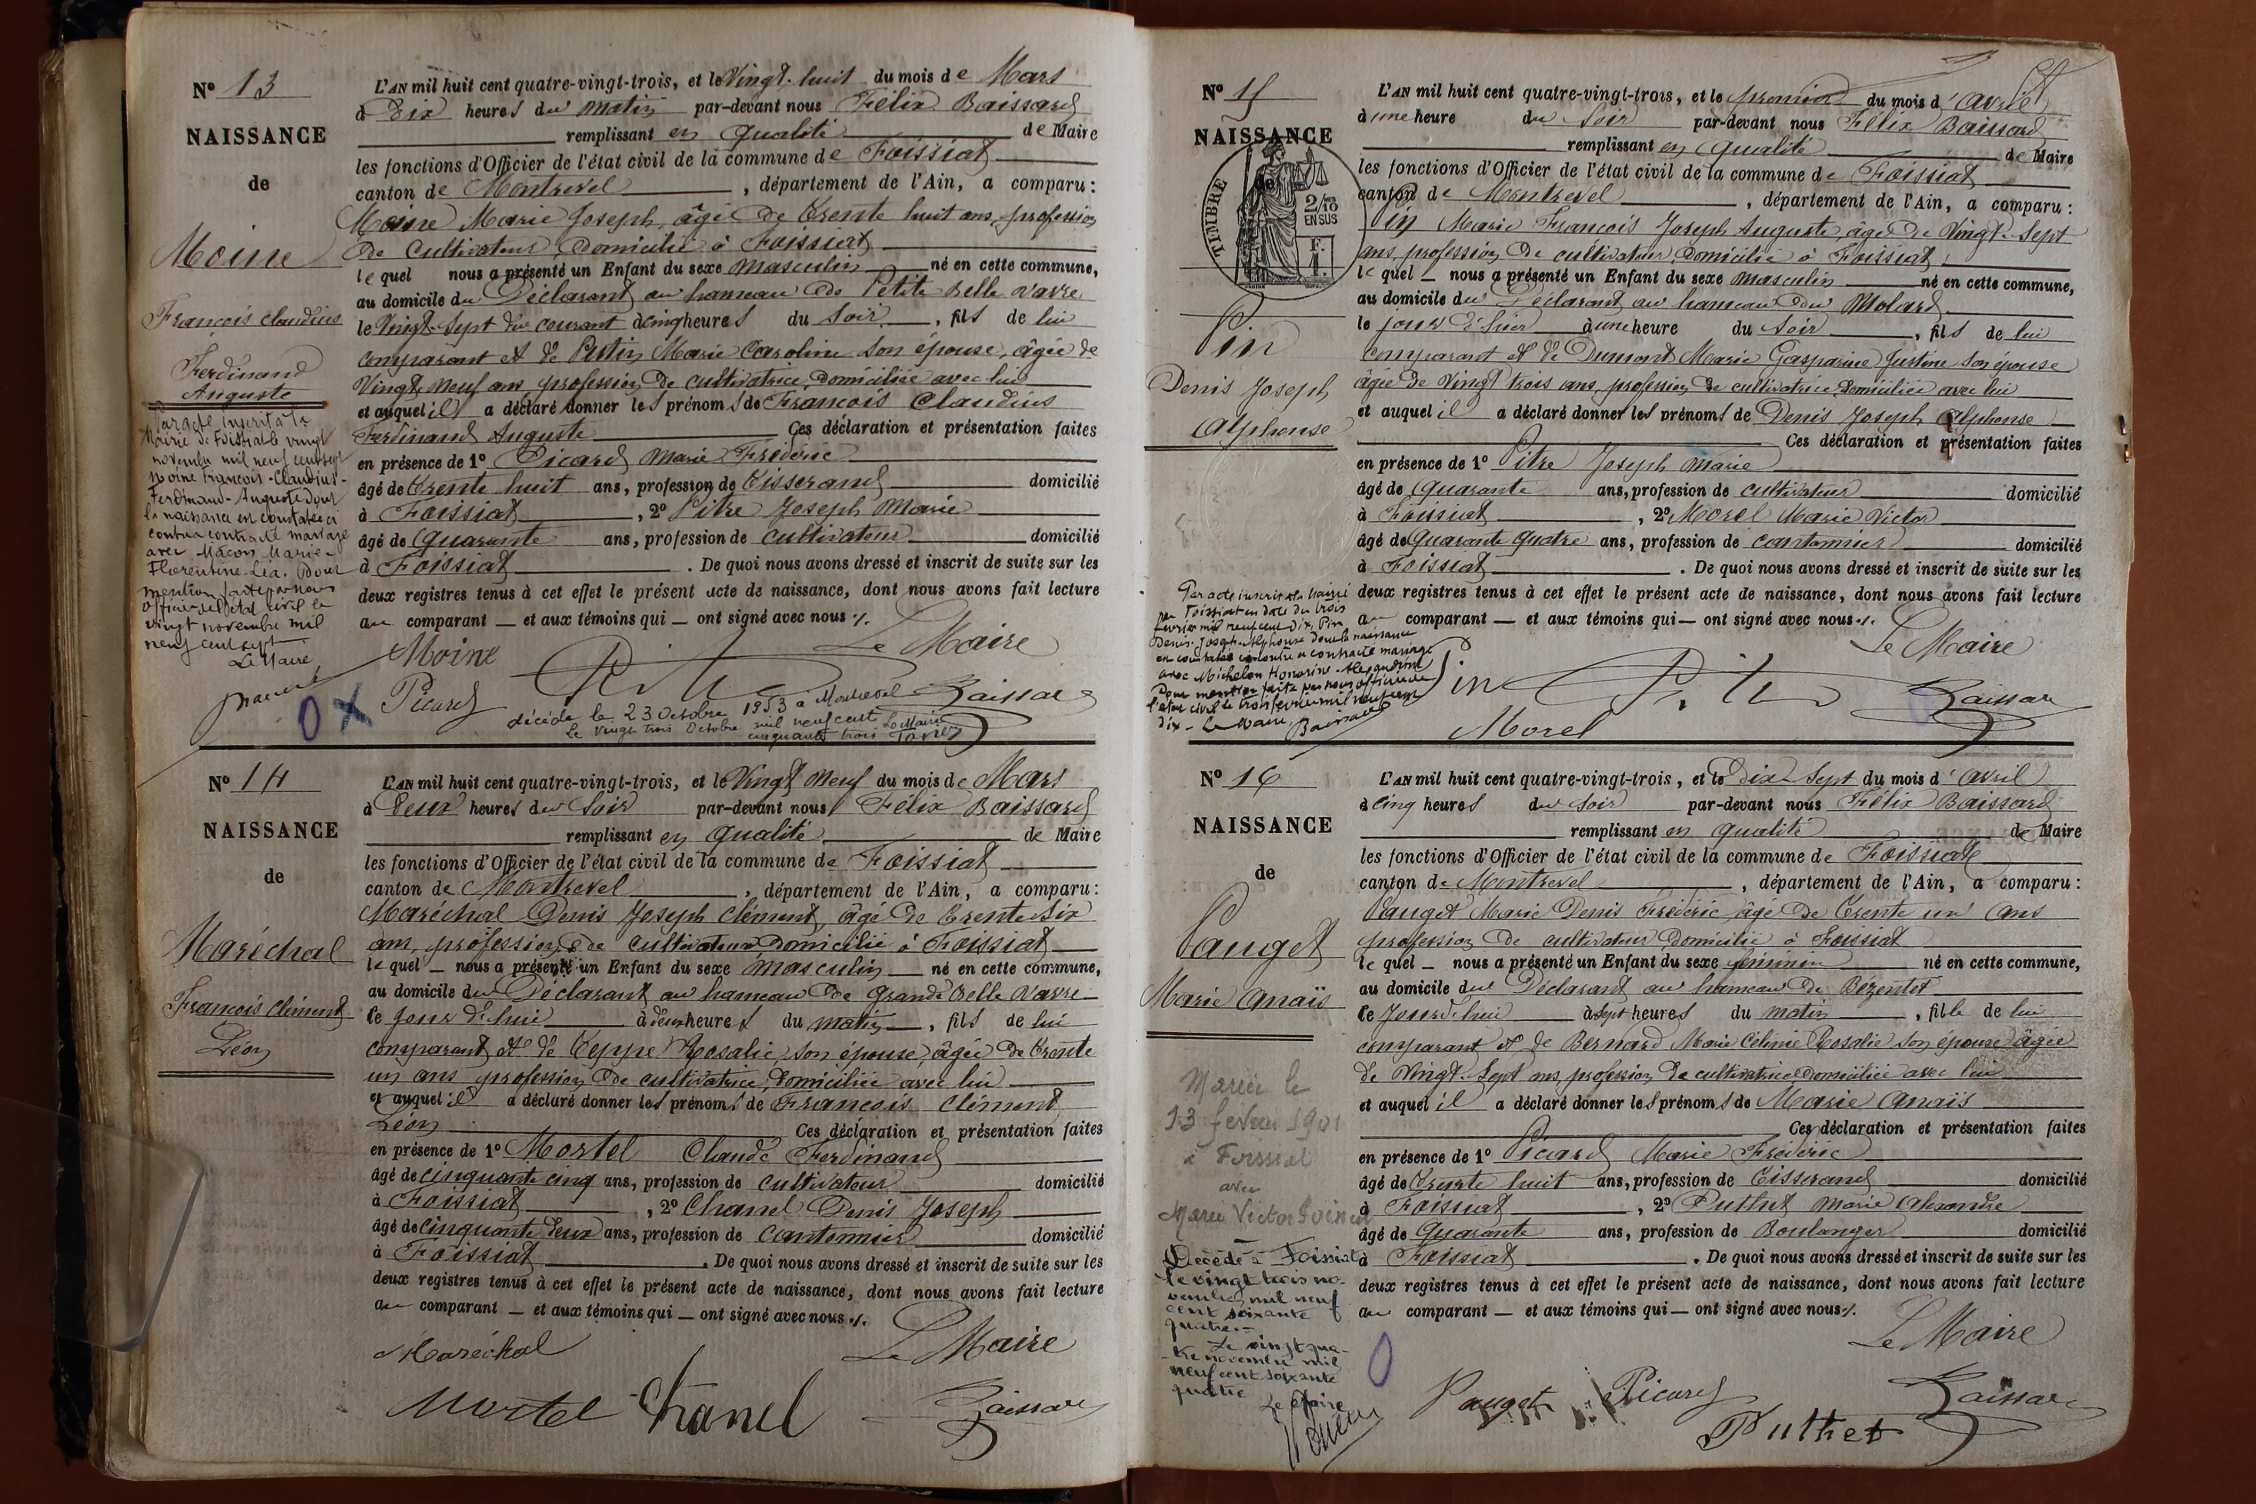 N° 13
NAISSANCE
de
Moine
François Claudius
Ferdinand
Auguste
Par acte inscrit à la
Mairie de Foissiat le vingt
novembre mil neuf cent sept
Moine François-Claudius-
Ferdinand-Auguste dont
la naissance est constatée ci
contre a contracté mariage
avec Mâcon Marie-
Florentine-Léa. Pour
mention faite par nous
officier de l'état civil le
vingt novembre mil
neuf cent sept
Le Maire
L'AN mil huit cent quatre-vingt-trois, et le Vingt-huit du mois de Mars
à Dix heures du matin par-devant nous Félix Baissard
remplissant en qualité de Maire
les fonctions d'Officier de l'état civil de la commune de Foissiat
canton de Montrevel, département de l'Ain, a comparu :
Moine Marie Joseph, âgé de trente huit ans, profession
de Cultivateur, domicilié à Foissiat
lequel nous a présenté un Enfant du sexe masculin né en cette commune,
au domicile du Déclarant au hameau de Petite Belle Vavre
le Vingt-Sept du courant à cinq heures du Soir, fils de lui
comparant et de Putin Marie Caroline son épouse, âgée de
Vingt Neuf ans profession de cultivatrice, domiciliée avec lui
et auquel il a déclaré donner les prénoms de François Claudius
Ferdinand Auguste Ces déclaration et présentation faites
en présence de 1° Picard Marie Frédéric
âgé de Trente huit ans, profession de Tisserand domicilié
à Foissiat, 2° Pitre Joseph Marie
âgé de Quarante ans, profession de cultivateur domicilié
à Foissiat. De quoi nous avons dressé et inscrit de suite sur les
deux registres tenus à cet effet le présent acte de naissance, dont nous avons fait lecture
au comparant — et aux témoins qui — ont signé avec nous ./.
Le Maire
Moine
Picard
Pitre
Baissard
décédé le 23 Octobre 1953 à Montrevel
Le vingt trois Octobre mil neuf cent
cinquante trois Le Maire
N° 14
NAISSANCE
de
Maréchal
François Clément
Léon
L'AN mil huit cent quatre-vingt-trois, et le Vingt Neuf du mois de Mars
à Deux heures du Soir par-devant nous Félix Baissard
remplissant en qualité de Maire
les fonctions d'Officier de l'état civil de la commune de Foissiat
canton de Montrevel, département de l'Ain, a comparu :
Maréchal Denis Joseph Clément, âgé de trente six
ans, profession de cultivateur domicilié à Foissiat
lequel — nous a présenté un Enfant du sexe masculin né en cette commune,
au domicile du Déclarant au hameau de Grande Belle Vavre
le Jour d'hui à deux heures du matin, fils de lui
comparant et de Teppe Rosalie, son épouse, âgée de trente
un ans profession de cultivatrice, domiciliée avec lui
et auquel il a déclaré donner les prénoms de François Clément
Léon Ces déclaration et présentation faites
en présence de 1° Mortel Claude Ferdinand
âgé de cinquante cinq ans, profession de cultivateur domicilié
à Foissiat, 2° Chanel Denis Joseph
âgé de cinquante deux ans, profession de cantonnier domicilié
à Foissiat. De quoi nous avons dressé et inscrit de suite sur les
deux registres tenus à cet effet le présent acte de naissance, dont nous avons fait lecture
au comparant — et aux témoins qui — ont signé avec nous ./.
Maréchal
Le Maire
Mortel Chanel
Baissard
N° 15
NAISSANCE
de
TIMBRE
2/10
EN SUS
F.
1.
Pin
Denis Joseph
Alphonse
Par acte inscrit à la Mairie
de Foissiat en date du trois
février mil neuf cent dix, Pin
Denis-Joseph-Alphonse dont la naissance
est constatée ci-contre a contracté mariage
avec Michelon Honorine-Alexandrine
Pour mention faite par nous officier de
l'état civil le trois février mil neuf cent
dix - Le Maire, Baissard
L'AN mil huit cent quatre-vingt-trois, et le premier du mois d'avril
à une heure du Soir par-devant nous Félix Baissard
remplissant en qualité de Maire
les fonctions d'Officier de l'état civil de la commune de Foissiat
canton de Montrevel, département de l'Ain, a comparu :
Pin Marie François Joseph Auguste âgé de Vingt-Sept
ans, profession de cultivateur, domicilié à Foissiat,
lequel — nous a présenté un Enfant du sexe masculin né en cette commune,
au domicile du Déclarant au hameau du Molard
le jour d'hier à une heure du Soir, fils de lui
comparant et de Dumont Marie Gasparine Justine son épouse
âgée de Vingt trois ans, profession de cultivatrice domiciliée avec lui
et auquel il a déclaré donner les prénoms de Denis Joseph Alphonse
Ces déclaration et présentation faites
en présence de 1° Pitre Joseph Marie
âgé de Quarante ans, profession de cultivateur domicilié
à Foissiat, 2° Morel Marie Victor
âgé de Quarante Quatre ans, profession de cantonnier domicilié
à Foissiat. De quoi nous avons dressé et inscrit de suite sur les
deux registres tenus à cet effet le présent acte de naissance, dont nous avons fait lecture
au comparant — et aux témoins qui — ont signé avec nous ./.
Le Maire
Pin Pitre
Baissard
Morel
N° 16
NAISSANCE
de
Pauget
Marie Anaïs
Mariée le
13 fevrier 1901
à Foissiat
avec
Marie Victor
Décédé à Foissiat
le vingt trois no-
vembre mil neuf
cent soixante
quatre.-
Le vingt qua-
tre novembre mil
neuf cent soixante
quatre
Le Maire
L'AN mil huit cent quatre-vingt-trois, et le Dix-Sept du mois d'avril
à cinq heures du Soir par-devant nous Félix Baissard
remplissant en qualité de Maire
les fonctions d'Officier de l'état civil de la commune de Foissiat
canton de Montrevel, département de l'Ain, a comparu :
Pauget Marie Denis Frédéric âgé de Trente un ans
profession de cultivateur domicilié à Foissiat
lequel — nous a présenté un Enfant du sexe féminin né en cette commune,
au domicile du Déclarant au hameau de Bézentet
le Jour d'hui à sept heures du matin, fille de lui
comparant et de Bernard Marie Célinie Rosalie son épouse âgée
de Vingt-Sept ans, profession de cultivatrice domiciliée avec lui
et auquel il a déclaré donner les prénoms de Marie Anaïs
Ces déclaration et présentation faites
en présence de 1° Picard Marie Frédéric
âgé de Trente huit ans, profession de Tisserand domicilié
à Foissiat, 2° Puthet Marie Alexandre
âgé de Quarante ans, profession de Boulanger domicilié
à Foissiat. De quoi nous avons dressé et inscrit de suite sur les
deux registres tenus à cet effet le présent acte de naissance, dont nous avons fait lecture
au comparant — et aux témoins qui — ont signé avec nous ./.
Le Maire
Pauget Picard
Baissard
Puthet